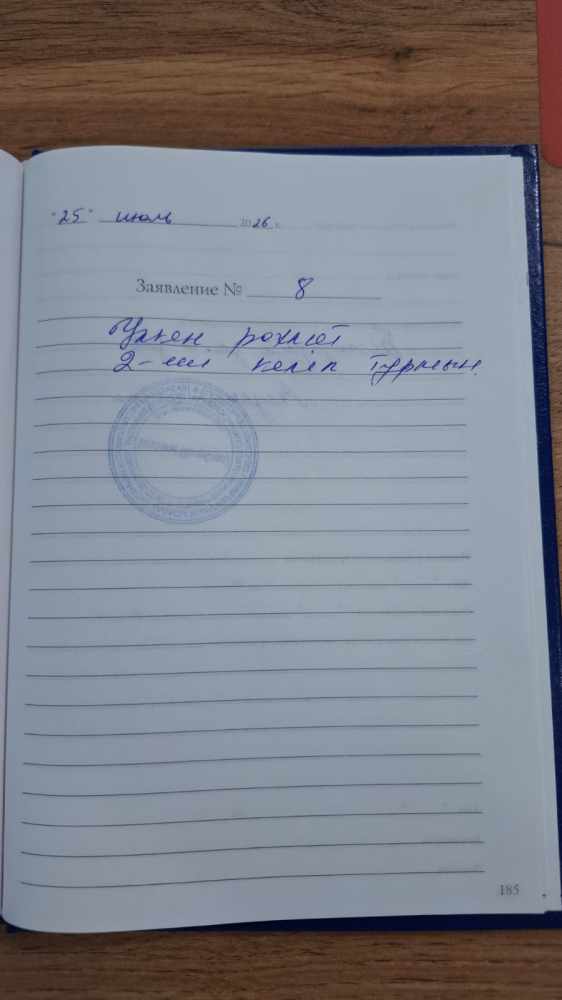 "25" июль 2026 г.
Заявление № 8
Үлкен рохмет
2-ші келіп турмын.
185